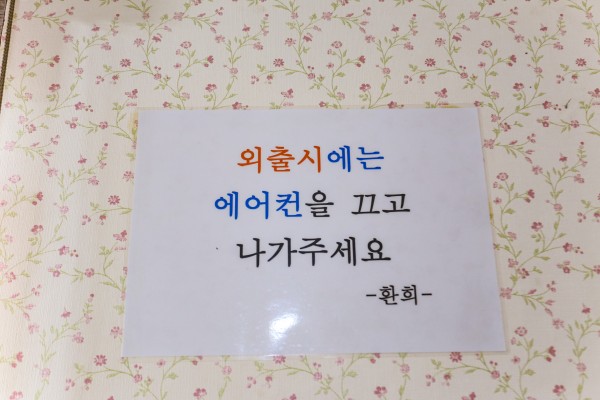 외출시에는
에어컨을 끄고
나가주세요
-환희-